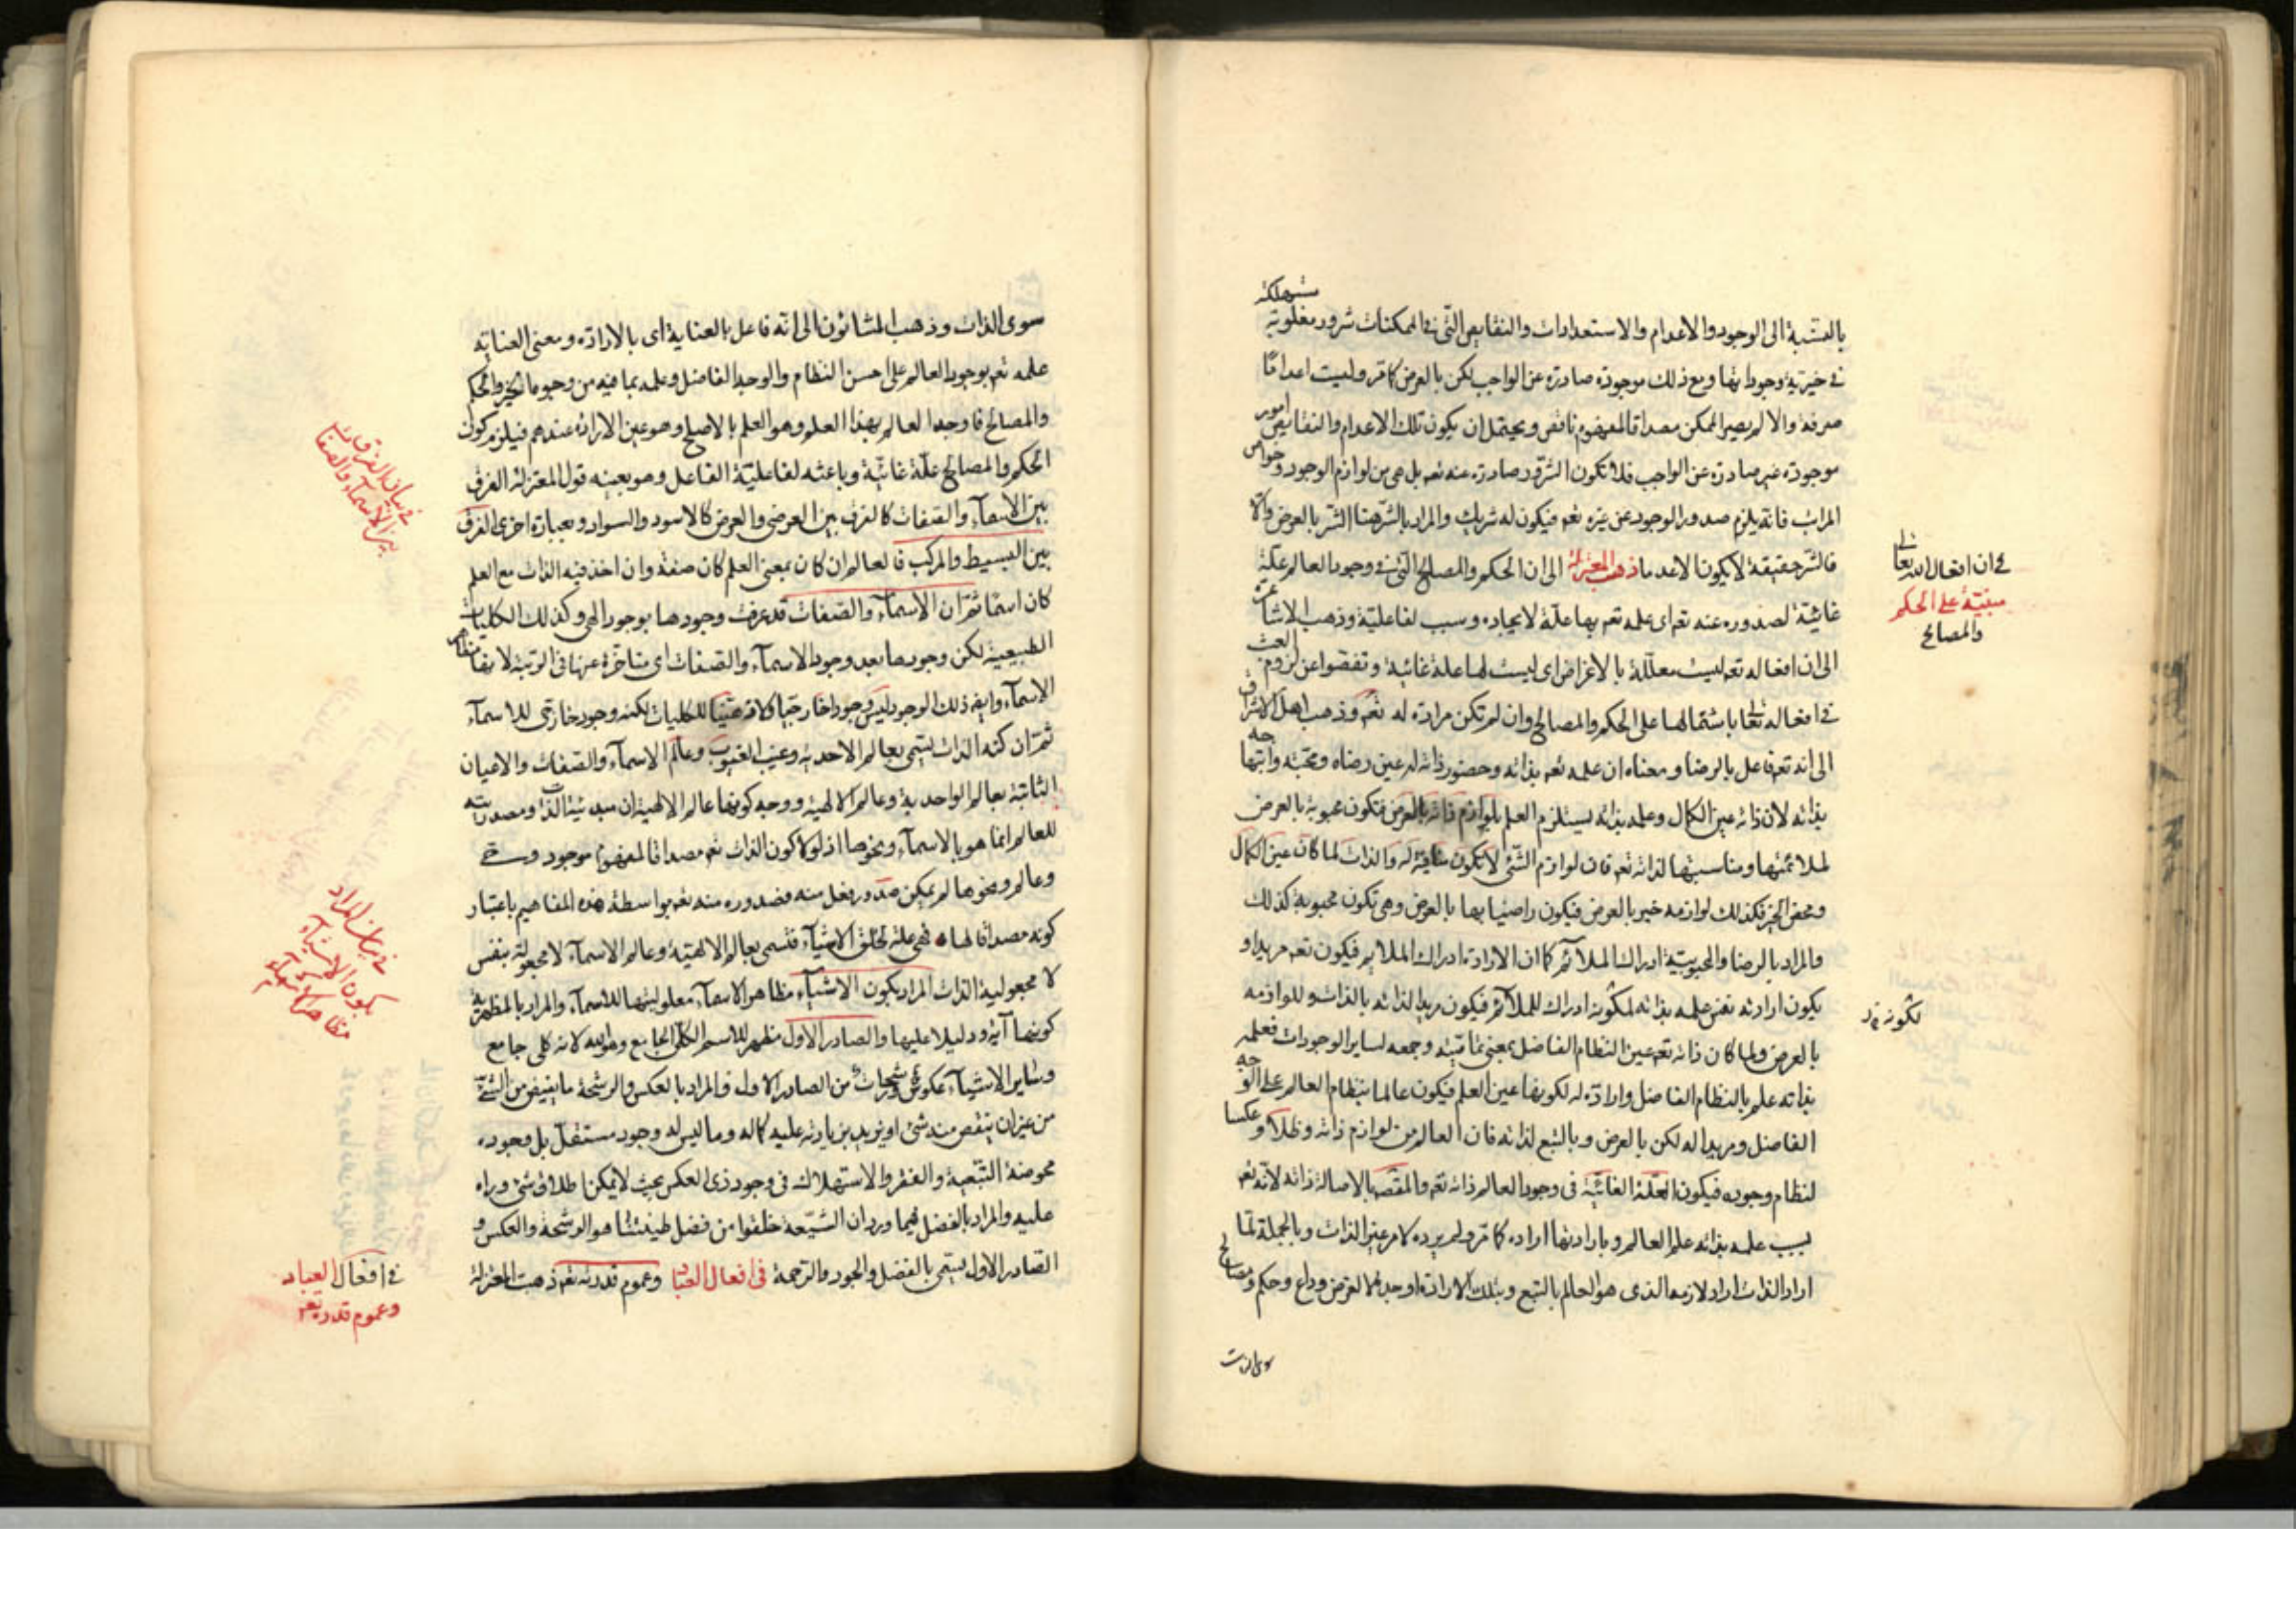 بالنسبة الى الوجود والاعدام والاستعدادات والنقايص التى فى الممكنات شرور مغلوبة مستهلكة
فى خيرية وجوداتها ومع ذلك موجودة صادرة عن الواجب لكن بالعرض كما مر وليست اعداما
صرفة والا لم يصير الممكن مصداقا لمفهوم ناقص ويحتمل ان يكون تلك الاعدام والنقايص امور
موجودة غير صادرة عن الواجب فلا تكون الشرور صادرة عنه تعم بل هى من لوازم الوجود وخواص
المراتب فانه يلزم صدور الوجود عن غيره تعم فيكون له شريك والمراد بالشر هنا الشر بالعرض والا
فالشر حقيقة لا يكون الا عدما ذهب المعتزلة الى ان الحكم والمصالح التى فى وجود العالم علة
غائية لصدوره عنه تعم اى علمه تعم بها علة لايجاده وسبب لفاعليته وذهب الاشاعرة
الى ان افعاله تعم ليست معللة بالاغراض اى ليست لها علة غائية وتفصوا عن لزوم العبث
فى افعاله تعالى باشتمالها على الحكم والمصالح وان لم تكن مرادة له تعم وذهب اهل الاشراق
الى انه تعم فاعل بالرضا ومعناه ان علمه تعم بذاته وحضور ذاته له عين رضاه ومحبته وابتهاجه
بذاته لان ذاته عين الكمال وعلمه بذاته يستلزم العلم بلوازم ذاته بالعرض فتكون محبوبة بالعرض
لملائمتها ومناسبتها لذاته تعم فان لوازم الشئ لا تكون منافية له والذات لما كان عين الكمال
ومحض الخير فكذلك لوازمه خير بالعرض فيكون راضيا بها بالعرض وهى تكون محبوبة كذلك
والمراد بالرضا والمحبوبية ادراك الملائم كما ان الارادة ادراك الملايم فيكون تعم مريدا و
يكون ارادته نفس علمه بذاته لكونه ادراك للملائم فيكون مريدا لذاته بالذات وللوازمه
بالعرض ولما كان ذاته تعم عين النظام الفاضل بمعنى تماميته وجمعه لساير الوجودات فعلمه
بذاته علم بالنظام الفاضل وارادة له لكونها عين العلم فيكون عالما بنظام العالم على الوجه
الفاضل ومريدا له لكن بالعرض وبالتبع لذاته فان العالم من لوازم ذاته وظلا وعكسا
لنظام وجوده فيكون العلة الغائية فى وجود العالم ذاته تعم والمقصد بالاصالة ذاته لانه تعم
بسبب علمه بذاته علم العالم وبارادتها اراده كما مر ولم يرده لامر غير الذات وبالجملة لما
اراد الذات اراد لازمها الذى هو العالم بالتبع وبتلك الارادة اوجده لا لغرض وداع وحكم ومصالح
سوى الذات
فى ان افعال الله تعالى
مبنية على الحكم
والمصالح
لكونه
سوى الذات وذهب المشائون الى انه فاعل بالعناية اى بالارادة ومعنى العناية
علمه تعم بوجود العالم على احسن النظام والوجه الفاضل وعلمه بما فيه من وجوه الخير والحكم
والمصالح فاوجد العالم بهذا العلم وهو العلم بالاصلح وهو عين الارادة عندهم فيلزم كون
الحكم والمصالح علة غائية وباعثه لفاعلية الفاعل وهو بعينه قول المعتزلة الفرق
بين الاسماء والصفات كالفرق بين العرضى والعرض كالاسود والسواد وبعبارة اخرى الفرق
بين البسيط والمركب فالعالم ان كان بمعنى العلم كان صفة وان اخذ فيه الذات مع العلم
كان اسما ثم ان الاسماء والصفات قد عرفت وجودها بوجود الهى وكذلك الكليات
الطبيعية لكن وجودها بعد وجود الاسماء والصفات اى متاخرة عنها فى الرتبة لانها مظاهر
الاسماء وايضا ذلك الوجود ليس وجودا خارجيا للكليات لكنه وجود خارجى للاسماء
ثم ان كنه الذات يسمى بعالم الاحدية وغيب الغيوب وعالم الاسماء والصفات والاعيان
الثابتة بعالم الواحدية وعالم الالهية ووجه كونها عالم الالهية ان مبدئية الذات ومصدريته
للعالم انما هو بالاسماء ونحوها اذ لولا كون الذات تعم مصداقا لمفهوم موجود وحى
وعالم ونحوها لم يمكن صدور فعل منه فصدوره منه تعم بواسطة هذه المفاهيم باعتبار
كونه مصداقا لها فهى علة لخلق الاشياء فتسمى بعالم الالهية وعالم الاسماء لا مجعولة بنفس
لا مجعولية الذات المراد بكون الاشياء مظاهر الاسماء معلوليتها للاسماء والمراد بالمظهرية
كونها آية ودليلا عليها والصادر الاول مظهر للاسم الكلى الجامع وهو الله لانه كلى جامع
وساير الاشياء عكوس ورشحات من الصادر الاول والمراد بالعكس والرشحة ما يفيض من الشئ
من غير ان ينقص منه شئ او يزيد بزيادته عليه كماله وما ليس له وجود مستقل بل وجوده
محوضة التبعية والفقر والاستهلاك فى وجود ذى العكس بحيث لا يمكن اطلاق شئ وراه
عليه والمراد بالفضل فيما ورد ان الشيعة خلقوا من فضل طينتنا هو الرشحة والعكس و
الصادر الاول يسمى بالفضل والجود والرحمة فى افعال العباد وعموم قدرته تعم ذهبت المعتزلة
فى بيان الفرق
بين الاسماء والصفات
فى بيان المراد
بكون الاشياء
مظاهر اسماء
فى افعال العباد
وعموم قدرته تعم